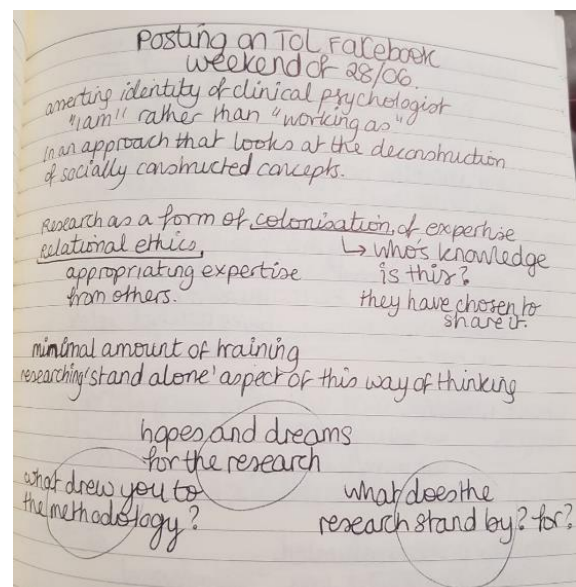 Posting on TOL Facebook
weekend of 28/06.
asserting identity of clinical psychologist
"I am" rather than "working as"
In an approach that looks at the deconstruction
of socially constructed concepts.
Research as a form of colonisation, of expertise
relational ethics,
appropriating expertise
from others.
↳ who's knowledge
is this?
they have chosen to
share it.
minimal amount of training
researching 'stand alone' aspect of this way of thinking
hopes and dreams
for the research
what drew you to
the methodology?
what does the
research stand by? for?